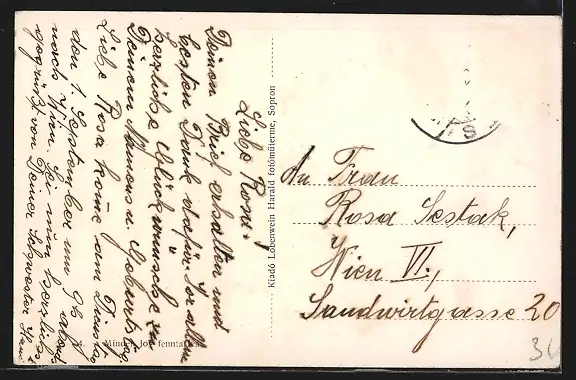 Liebe Rosi.
Deinen Brief erhalten und
besten Dank dafür. Vor allem
herzliche Glückwünsche zu
Deinem Namens u. Geburtstg.
Liebe Rosa kome am Dienstg
den 1. September um 9h abend
nach Wien. Sei nun herzlichs
gegrüßt von Deiner Schwester
An Frau
Rosa Sestak,
Wien VI.,
Sandwirtgasse 20
Kiadó Lobenwein Harald fotóműterme, Sopron
Minden jog fenntartva